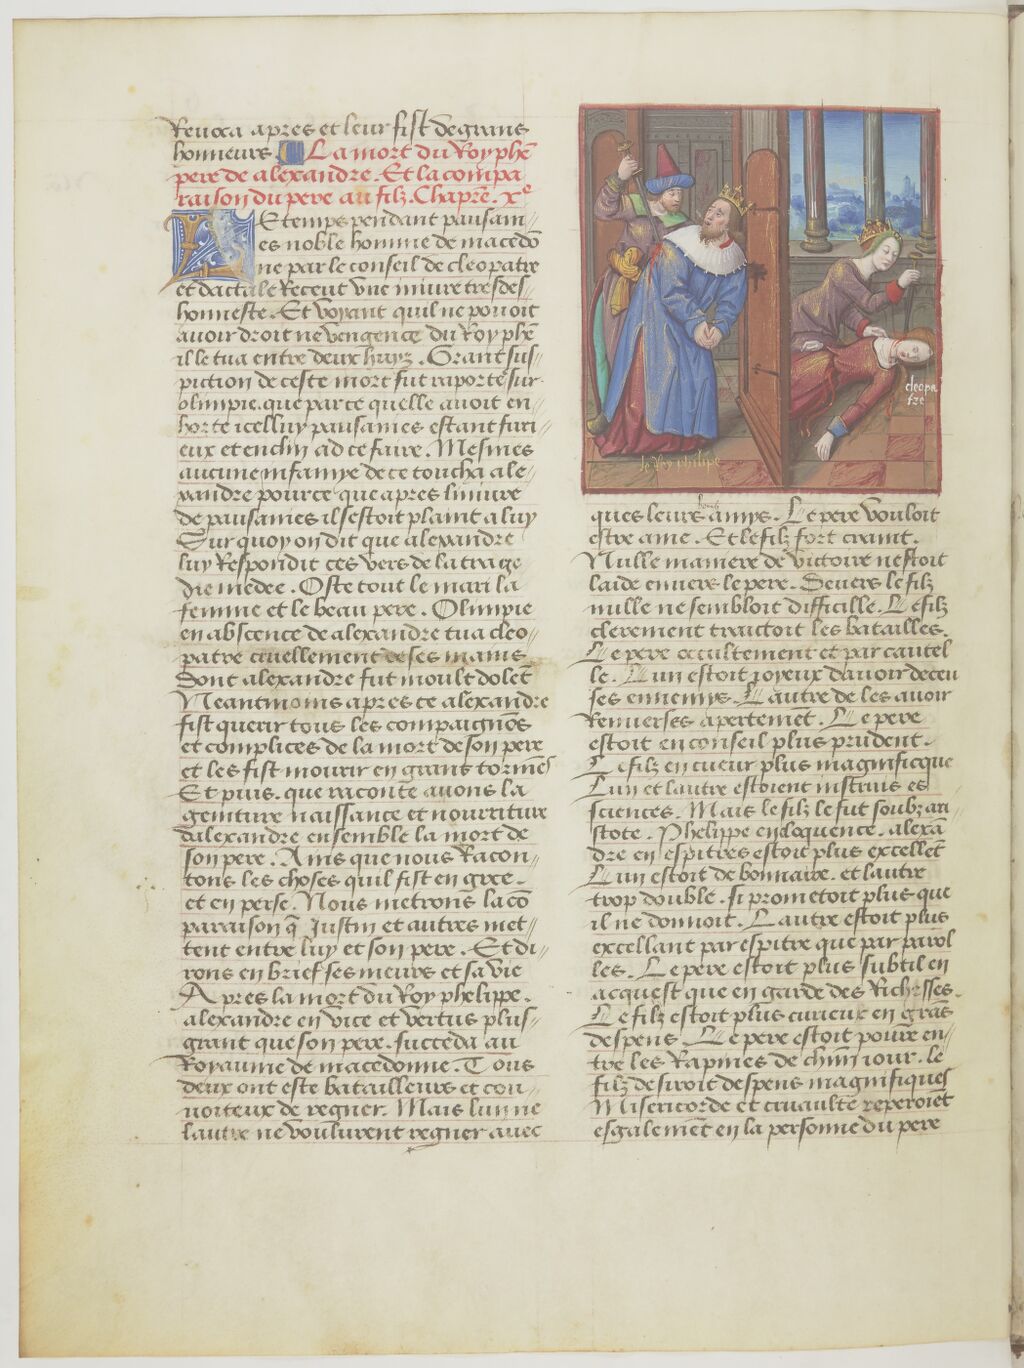 Reuoca apres et leur fist de grans
honneurs. La mort du Roy phē
pere de alexandre. Et la compa
raison du pere au filz. Chapr̄e. xe
LE temps pendant pausam⸗
es noble homme de macedō
ne par le conseil de cleopatre
et dactale Receut vne iniure tresdes⸗
honneste. Et voyant quil ne pouoit
auoir droit ne vengence du Roy phē
il le tua entre deux huyz. Grant sus⸗
piction de ceste mort fut raporte sur
olimpie. que parce quelle auoit en⸗
horte icelluy pausanies estant furi⸗
eux et enclin ad ce faire. Mesmes
aucune infamye de ce toucha ale⸗
xandre pource que apres liniure
de pausanies il sestoit plaint a luy
Sur quoy on dit que alexandre
luy Respondit ces vers de la trage
die medee. Oste tout le mari la
femme et le beau pere. Olimpie
en abscence de alexandre tua cleo⸗
patre cruellement de ses mains
dont alexandre fut moult dolēt
Neantmoins apres ce alexandre
fist querir tous les compaignōs
et complices de la mort de son pere
et les fist mourir en grans tormēs
Et puis. que raconte auons la
geniture naissance et nourriture
dalexandre ensemble la mort de
son pere. Ains que nous Racon⸗
tons les choses quil fist en grece.
et en perse. Nous metrons la cō
paraison q̄ Justin et autres met⸗
tent entre luy et son pere. Et di⸗
rons en brief ses meurs et sa vie
Apres la mort du Roy phelippe.
alexandre en vice et vertus plus⸗
grant que son pere. succeda au
Royaume de macedonne. Tous
deux ont este batailleurs et con⸗
uoiteux de regner. Mais lun ne
lautre ne voulurent regner auec
le Roy philipe
cleopa
tre
ques leurs amys. Le pere vouloit
estre ame. Et le filz fort craint.
Nulle maniere de victoire nestoit
laide enuers le pere. Deuers le filz
nulle ne sembloit difficille. Le filz
clerement traictoit les batailles.
Le pere occultement et par cautel
le. Lun estoit joyeux dauoir deceu
ses ennemys. Lautre de les auoir
Renuerses apertemēt. Le pere
estoit en conseil plus prudent.
Le filz en cueur plus magnificque
Lun et lautre estoient instruis es
sciences. Mais le filz le fut soubz ari
stote. Phelippe en eloquence. alexā
dre en espitres estoit plus excellēt
Lun estoit debonnaire. et lautre
trop double. si prometoit plus que
il ne donnoit. Lautre estoit plus
excellant par espitre que par parol
les. Le pere estoit plus subtil en
acquest que en garde des Richesses.
Le filz estoit plus curieux en grās
despens. Le pere estoit poure en⸗
tre les Rapines de chūn iour. le
filz desiroit despens magnifiques
Misericorde et cruaulte reperoiēt
esgalemēt en la personne du pere